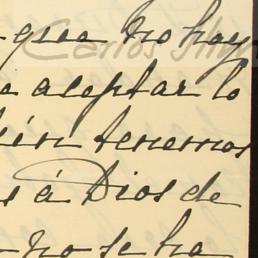 que no hay
a aceptar lo
ién tenemos
s á Dios de
no se ha